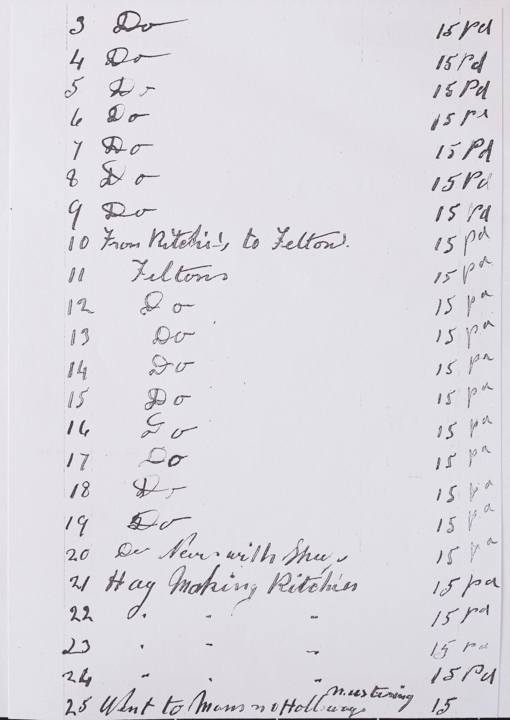 3 Do 15 pd
4 Do 15 Pd
5 Do 15 Pd
6 Do 15 pd
7 Do 15 Pd
8 Do 15 Pd
9 Do 15 pd
10 From Ritchi's, to Felton's. 15 pd
11 Feltons 15 pd
12 Do 15 pd
13 Do 15 pd
14 Do 15 pd
15 Do 15 pd
16 Do 15 pd
17 Do 15 pd
18 Do 15 pd
19 Do 15 pd
20 Do with 15 pd
21 Hay Making Ritchies 15 pd
22 " " " 15 pd
23 " " " 15 pd
24 " " " 15 Pd
mustering
25 Went to 15